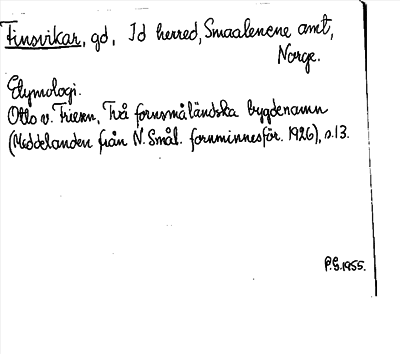 Finsvikar, gd, Id herred, Smaalenene amt,
Norge.
Etymologi.
Otto v. Friesen, Två fornsmåländska bygdenamn
(Meddelanden från N. Smål. fornminnesför. 1926), s. 13.
P.G. 1955.